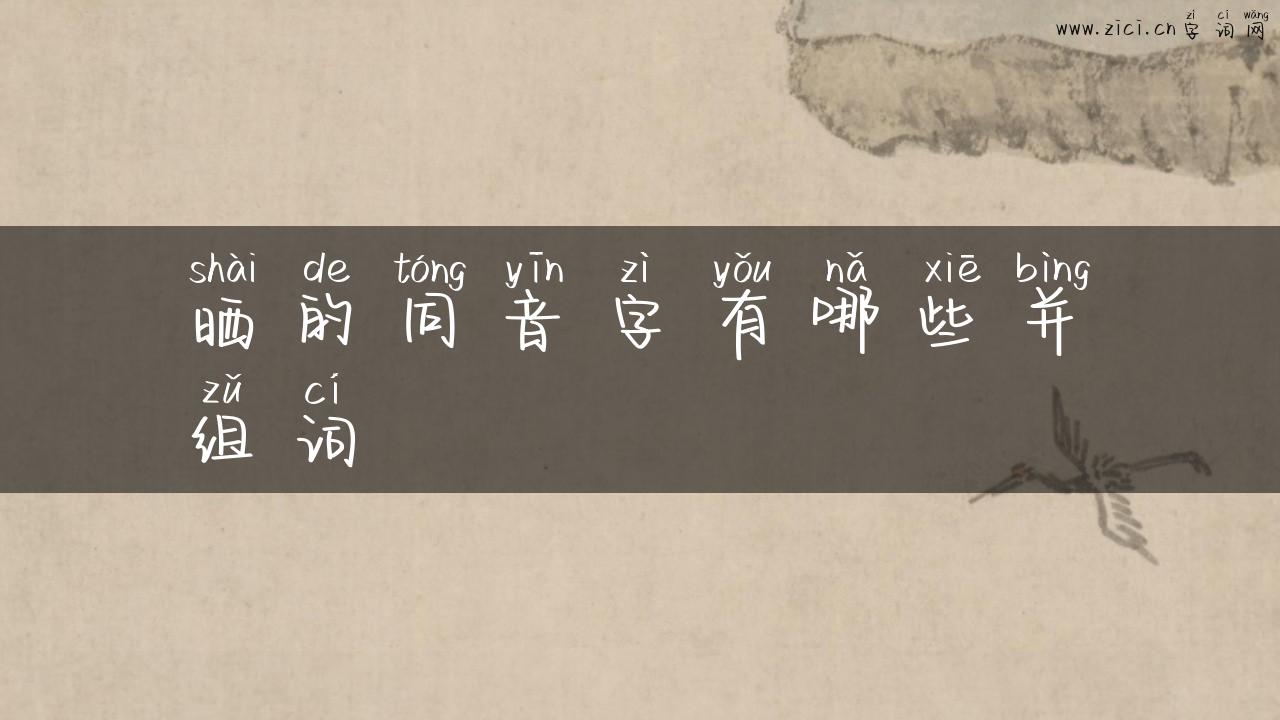 zì cí wǎng
www.zici.cn字词网
shài de tóng yīn zì yǒu nǎ xiē bìng
晒的同音字有哪些并
zǔ cí
组词